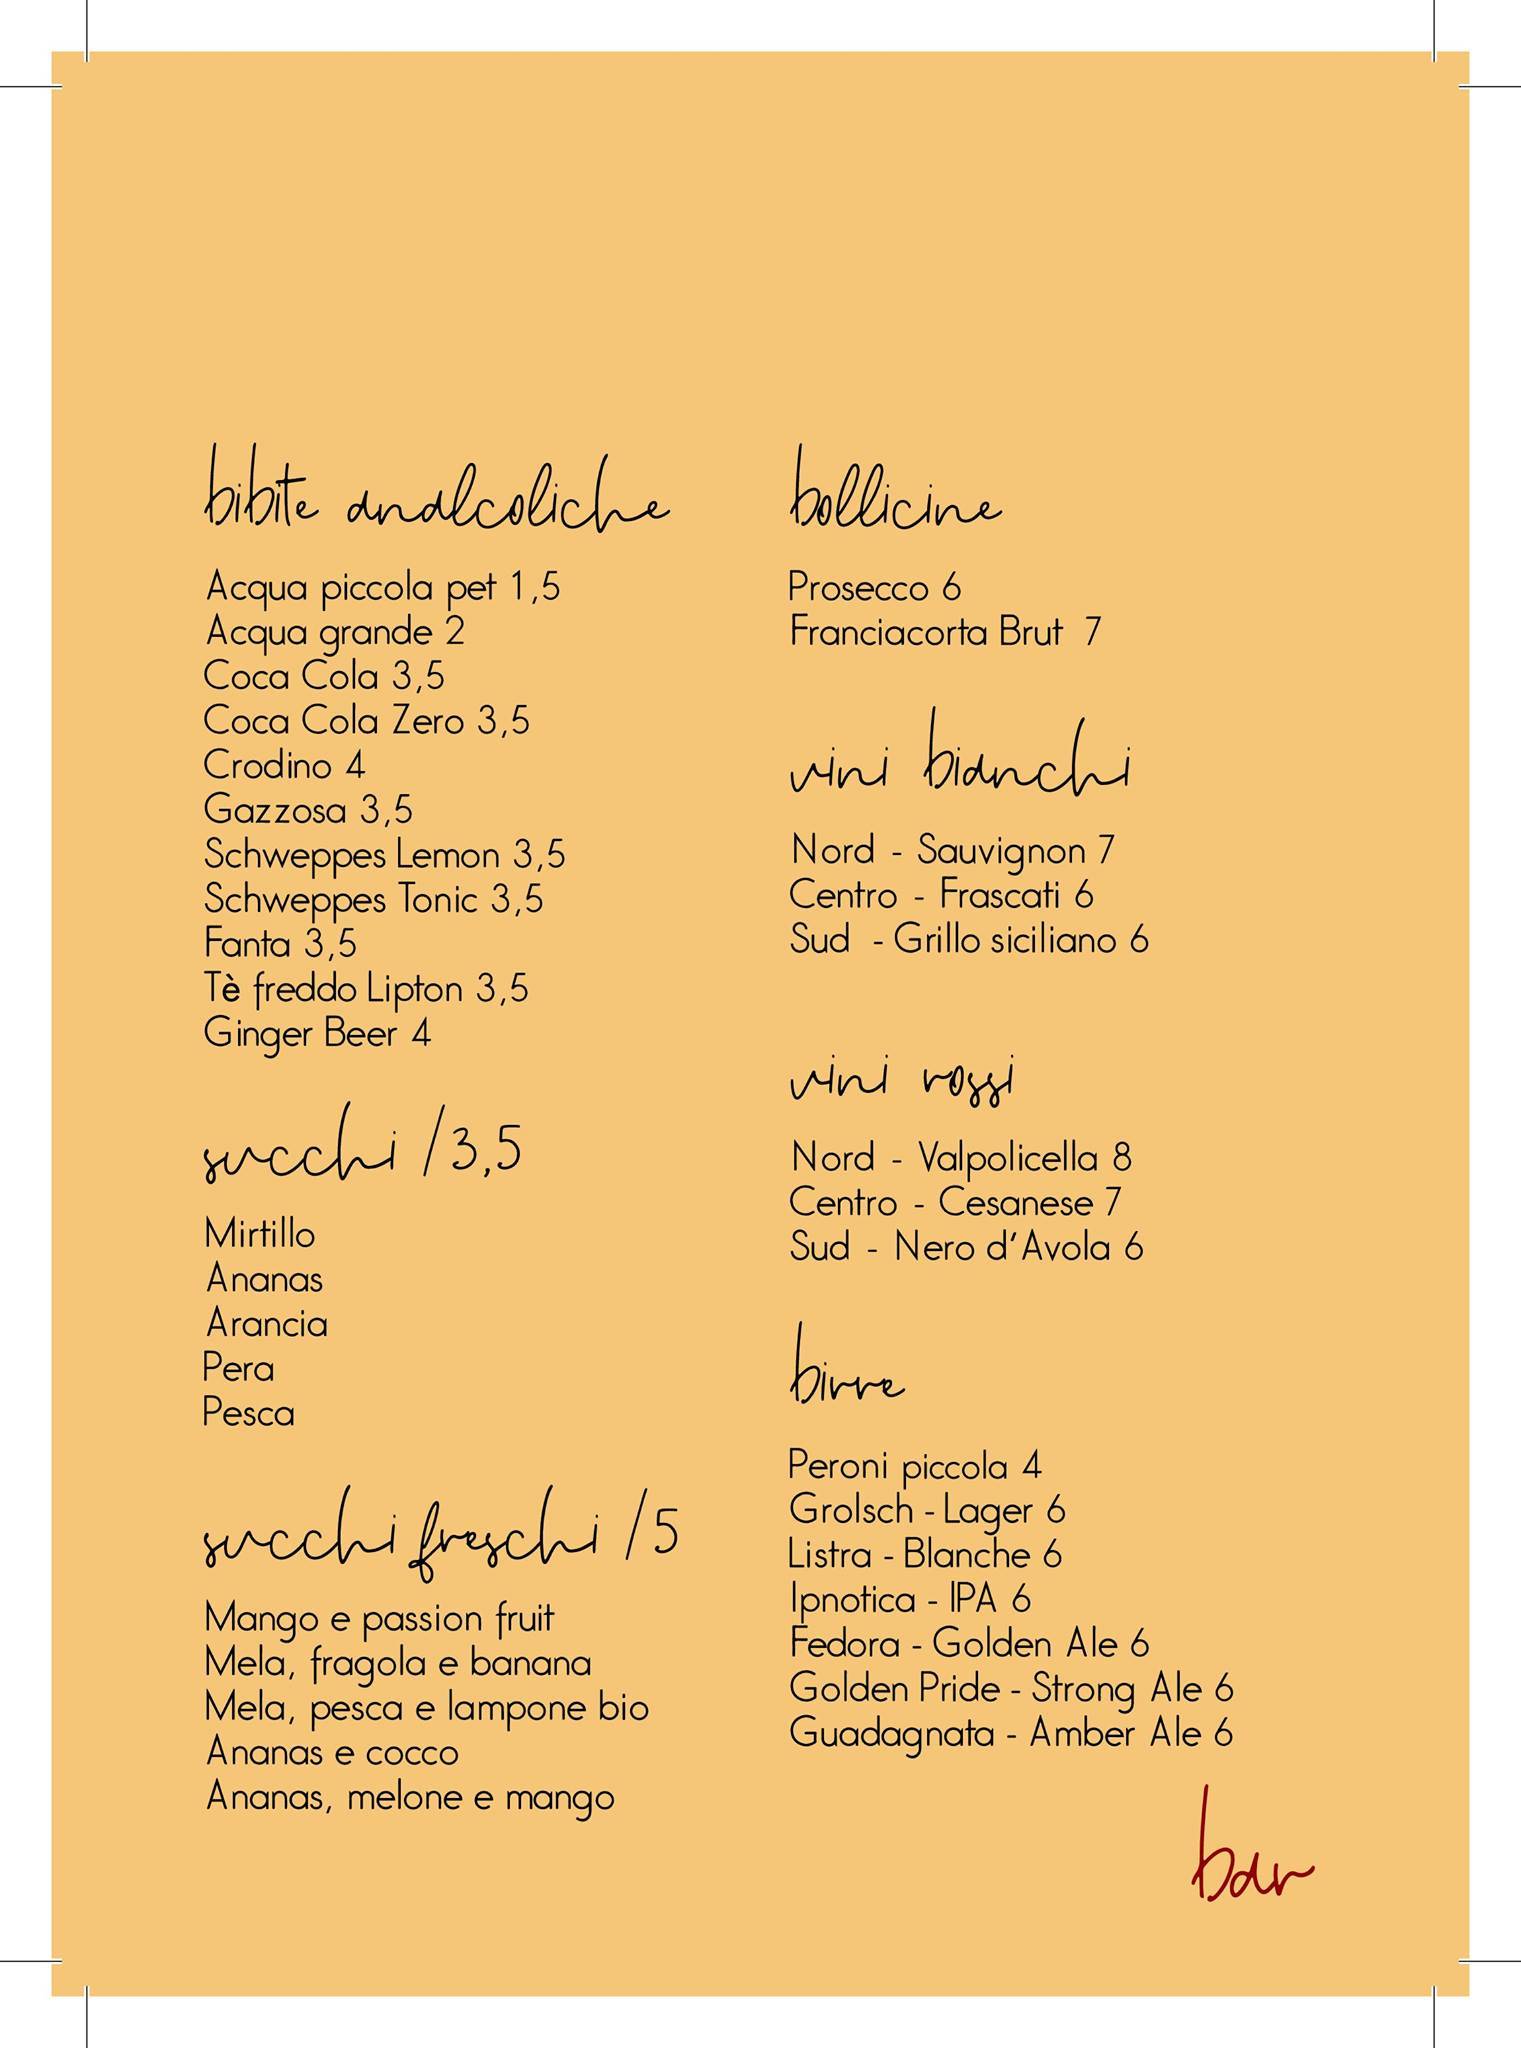 bibite analcoliche
Acqua piccola pet 1,5
Acqua grande 2
Coca Cola 3,5
Coca Cola Zero 3,5
Crodino 4
Gazzosa 3,5
Schweppes Lemon 3,5
Schweppes Tonic 3,5
Fanta 3,5
Tè freddo Lipton 3,5
Ginger Beer 4
succhi /3,5
Mirtillo
Ananas
Arancia
Pera
Pesca
succhi freschi /5
Mango e passion fruit
Mela, fragola e banana
Mela, pesca e lampone bio
Ananas e cocco
Ananas, melone e mango
bollicine
Prosecco 6
Franciacorta Brut 7
vini bianchi
Nord - Sauvignon 7
Centro - Frascati 6
Sud - Grillo siciliano 6
vini rossi
Nord - Valpolicella 8
Centro - Cesanese 7
Sud - Nero d'Avola 6
birre
Peroni piccola 4
Grolsch - Lager 6
Listra - Blanche 6
Ipnotica - IPA 6
Fedora - Golden Ale 6
Golden Pride - Strong Ale 6
Guadagnata - Amber Ale 6
bar